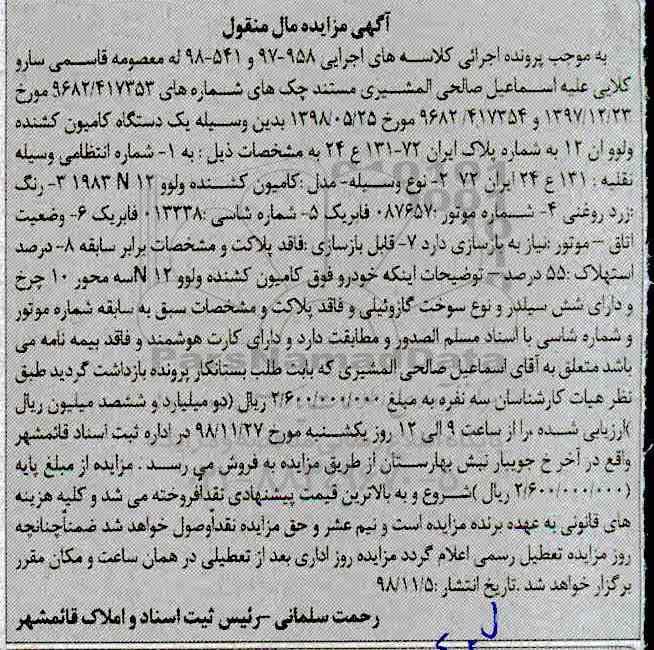 آگهی مزایده مال منقول
به موجب پرونده اجرائی کلاسه های اجرایی ۹۵۸-۹۷ و ۵۴۱-۹۸ له معصومه قاسمی سارو
کلایی علیه اسماعیل صالحی المشیری مستند چک های شماره های ۹۶۸۲/۴۱۷۳۵۳ مورخ
۱۳۹۷/۱۲/۲۳ و ۹۶۸۲/۴۱۷۳۵۴ مورخ ۱۳۹۸/۰۵/۲۵ بدین وسیله یک دستگاه کامیون کشنده
ولوو ان ۱۲ به شماره پلاک ایران ۷۲-۱۳۱ ع ۲۴ به مشخصات ذیل : به ۱- شماره انتظامی وسیله
نقلیه : ۱۳۱ ع ۲۴ ایران ۷۲ ۲- نوع وسیله- مدل :کامیون کشنده ولوو N ۱۲ ۱۹۸۳ ۳- رنگ
:زرد روغنی ۴- شماره موتور :۰۸۷۶۵۷ فابریک ۵- شماره شاسی :۰۱۳۳۳۸ فابریک ۶- وضعیت
اتاق – موتور :نیاز به بازسازی دارد ۷- قابل بازسازی :فاقد پلاکت و مشخصات برابر سابقه ۸- درصد
استهلاک :۵۵ درصد – توضیحات اینکه خودرو فوق کامیون کشنده ولوو N ۱۲سه محور ۱۰ چرخ
و دارای شش سیلندر و نوع سوخت گازوئیلی و فاقد پلاکت و مشخصات سبق به سابقه شماره موتور
و شماره شاسی با اسناد مسلم الصدور و مطابقت دارد و دارای کارت هوشمند و فاقد بیمه نامه می
باشد متعلق به آقای اسماعیل صالحی المشیری که بابت طلب بستانکار پرونده بازداشت گردید طبق
نظر هیات کارشناسان سه نفره به مبلغ ۲/۶۰۰/۰۰۰/۰۰۰ ریال (دو میلیارد و ششصد میلیون ریال
)ارزیابی شده ،را از ساعت ۹ الی ۱۲ روز یکشنبه مورخ ۹۸/۱۱/۲۷ در اداره ثبت اسناد قائمشهر
واقع در آخر خ جویبار نبش بهارستان از طریق مزایده به فروش می رسد . مزایده از مبلغ پایه
(۲/۶۰۰/۰۰۰/۰۰۰ ریال )شروع و به بالاترین قیمت پیشنهادی نقداًفروخته می شد و کلیه هزینه
های قانونی به عهده برنده مزایده است و نیم عشر و حق مزایده نقداًوصول خواهد شد ضمناًچنانچه
روز مزایده تعطیل رسمی اعلام گردد مزایده روز اداری بعد از تعطیلی در همان ساعت و مکان مقرر
برگزار خواهد شد .تاریخ انتشار :۹۸/۱۱/۵
رحمت سلمانی –رئیس ثبت اسناد و املاک قائمشهر